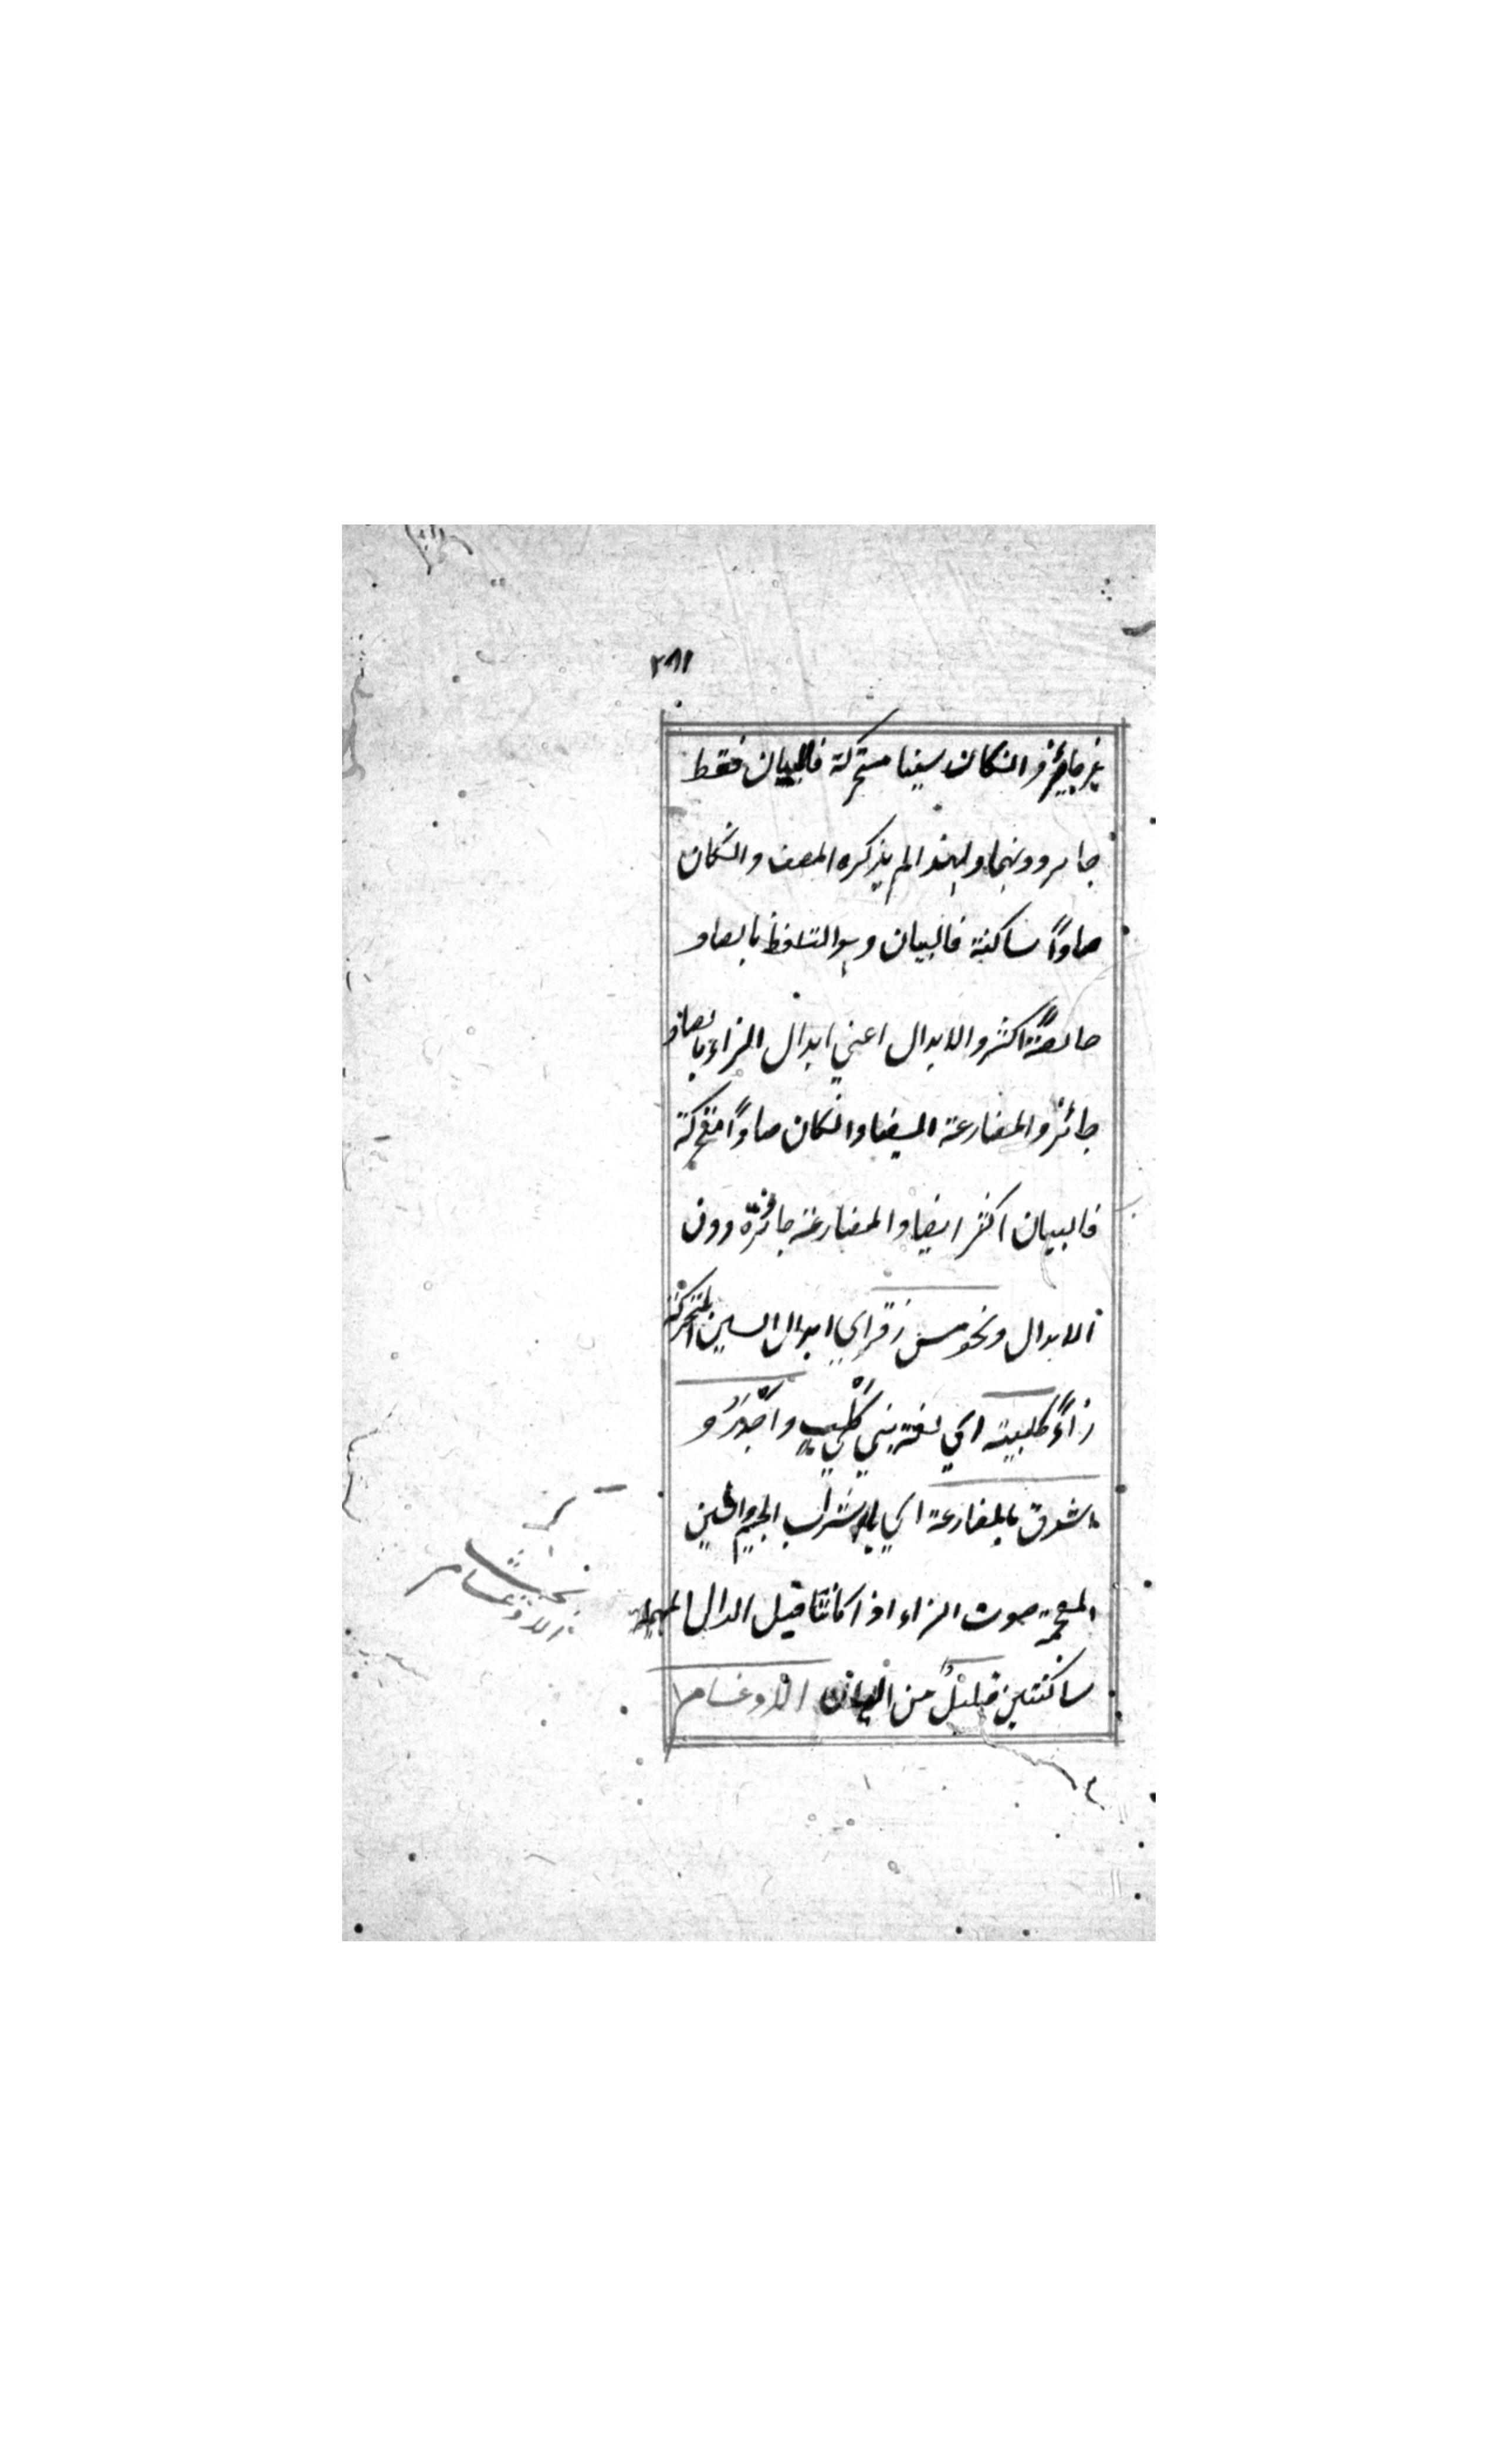 ٢٨١
غير جايز وان كان سينا متحركة فالبيان فقط
جايز دونهما ولهذا لم يذكره المصنف وان كان
صادًا ساكنة فالبيان وهو التلفظ بالصاد
خالصةً اكثر والابدال اعني ابدال الزاء بالصاد
جائز والمضارعة ايضا وان كان صادًا متحركة
فالبيان اكثر ايضا والمضارعة جائزة دون
الابدال ونحو مس زقر اي ابدال السين المتحركة
زاءً كلبية اي لغة بني كلب واجدر و
اشدق بالمضارعة اي باشراب الجيم والشين
المعجمة صوت الزاء اذا كانتا قبل الدال المهملة
ساكنتين قليل من البيان الادغام
بحث
الادغام